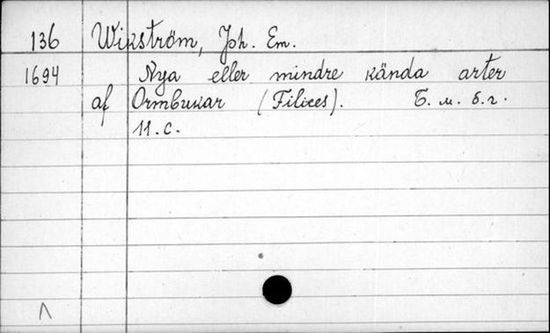 136 Wikström, Joh. Em.
1694 Nya eller mindre kända arter
af Ormbukar (Filices). Б. м. б. г.
11. с.